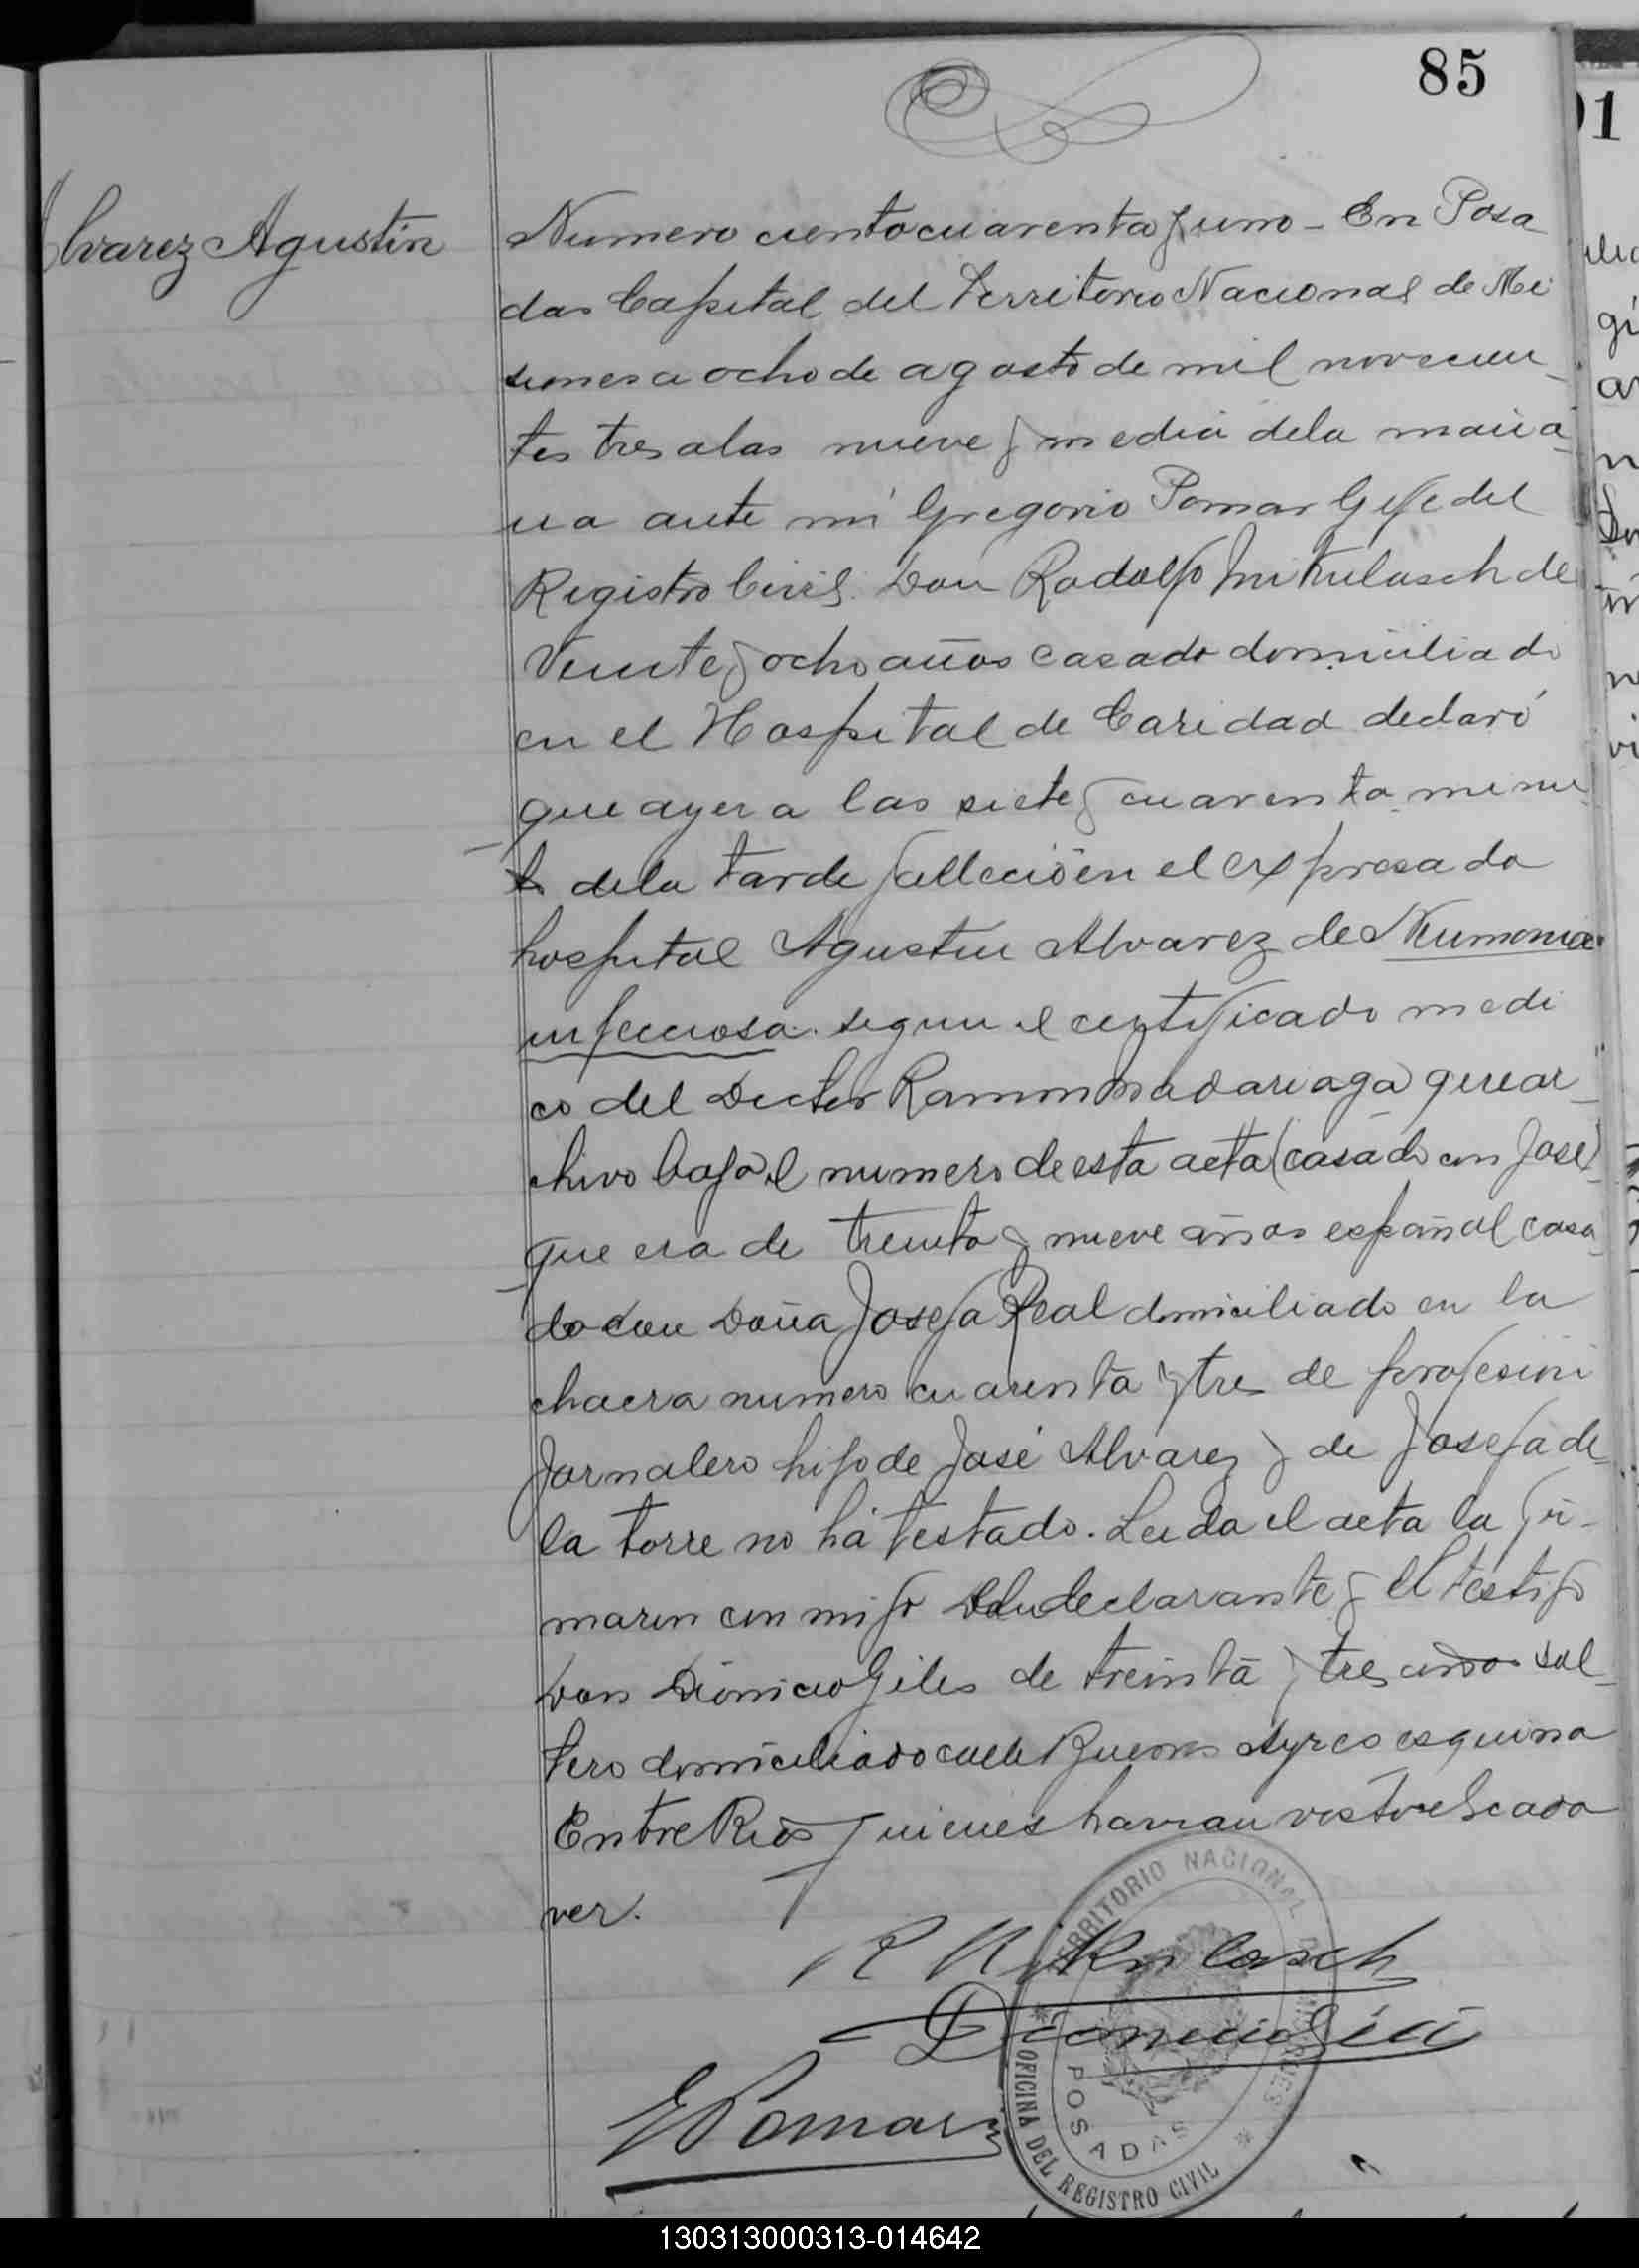 85
Alvarez Agustin
Numero ciento cuarenta y uno - En Posa
das Capital del Territorio Nacional de Mi
siones a ocho de agosto de mil novecien
tos tres a las nueve y media de la maña
na ante mi Gregorio Pomar Gefe del
Registro Civil. Don Rodolfo Mikulasch de
Veinte y ocho años casado domiciliado
en el Hospital de Caridad declaró
que ayer a las siete y cuarenta minu
ts de la tarde falleció en el expresado
hospital Agustin Alvarez de Neumonia
infecciosa segun el certificado medi
co del Doctor Ramon Madariaga que ar
chivo bajo el numero de esta acta (casado con José)
que era de treinta y nueve años español casa
do con Doña Josefa Real domiciliado en la
chacra numero cuarenta y tres de profesion
Jornalero hijo de José Alvarez y de Josefa de
la torre no há testado. Leida el acta la fir
maron conmigo el declarante y el testigo
Don Dionicio Giles de treinta y tres años sol
tero domiciliado calle Buenos Ayres esquina
Entre Rios quienes havian visto el cada
ver.
R Mikulasch
Dionicio
GPomar
TERRITORIO NACIONAL DE MISIONES
OFICINA DEL REGISTRO CIVIL
POSADAS
130313000313-014642